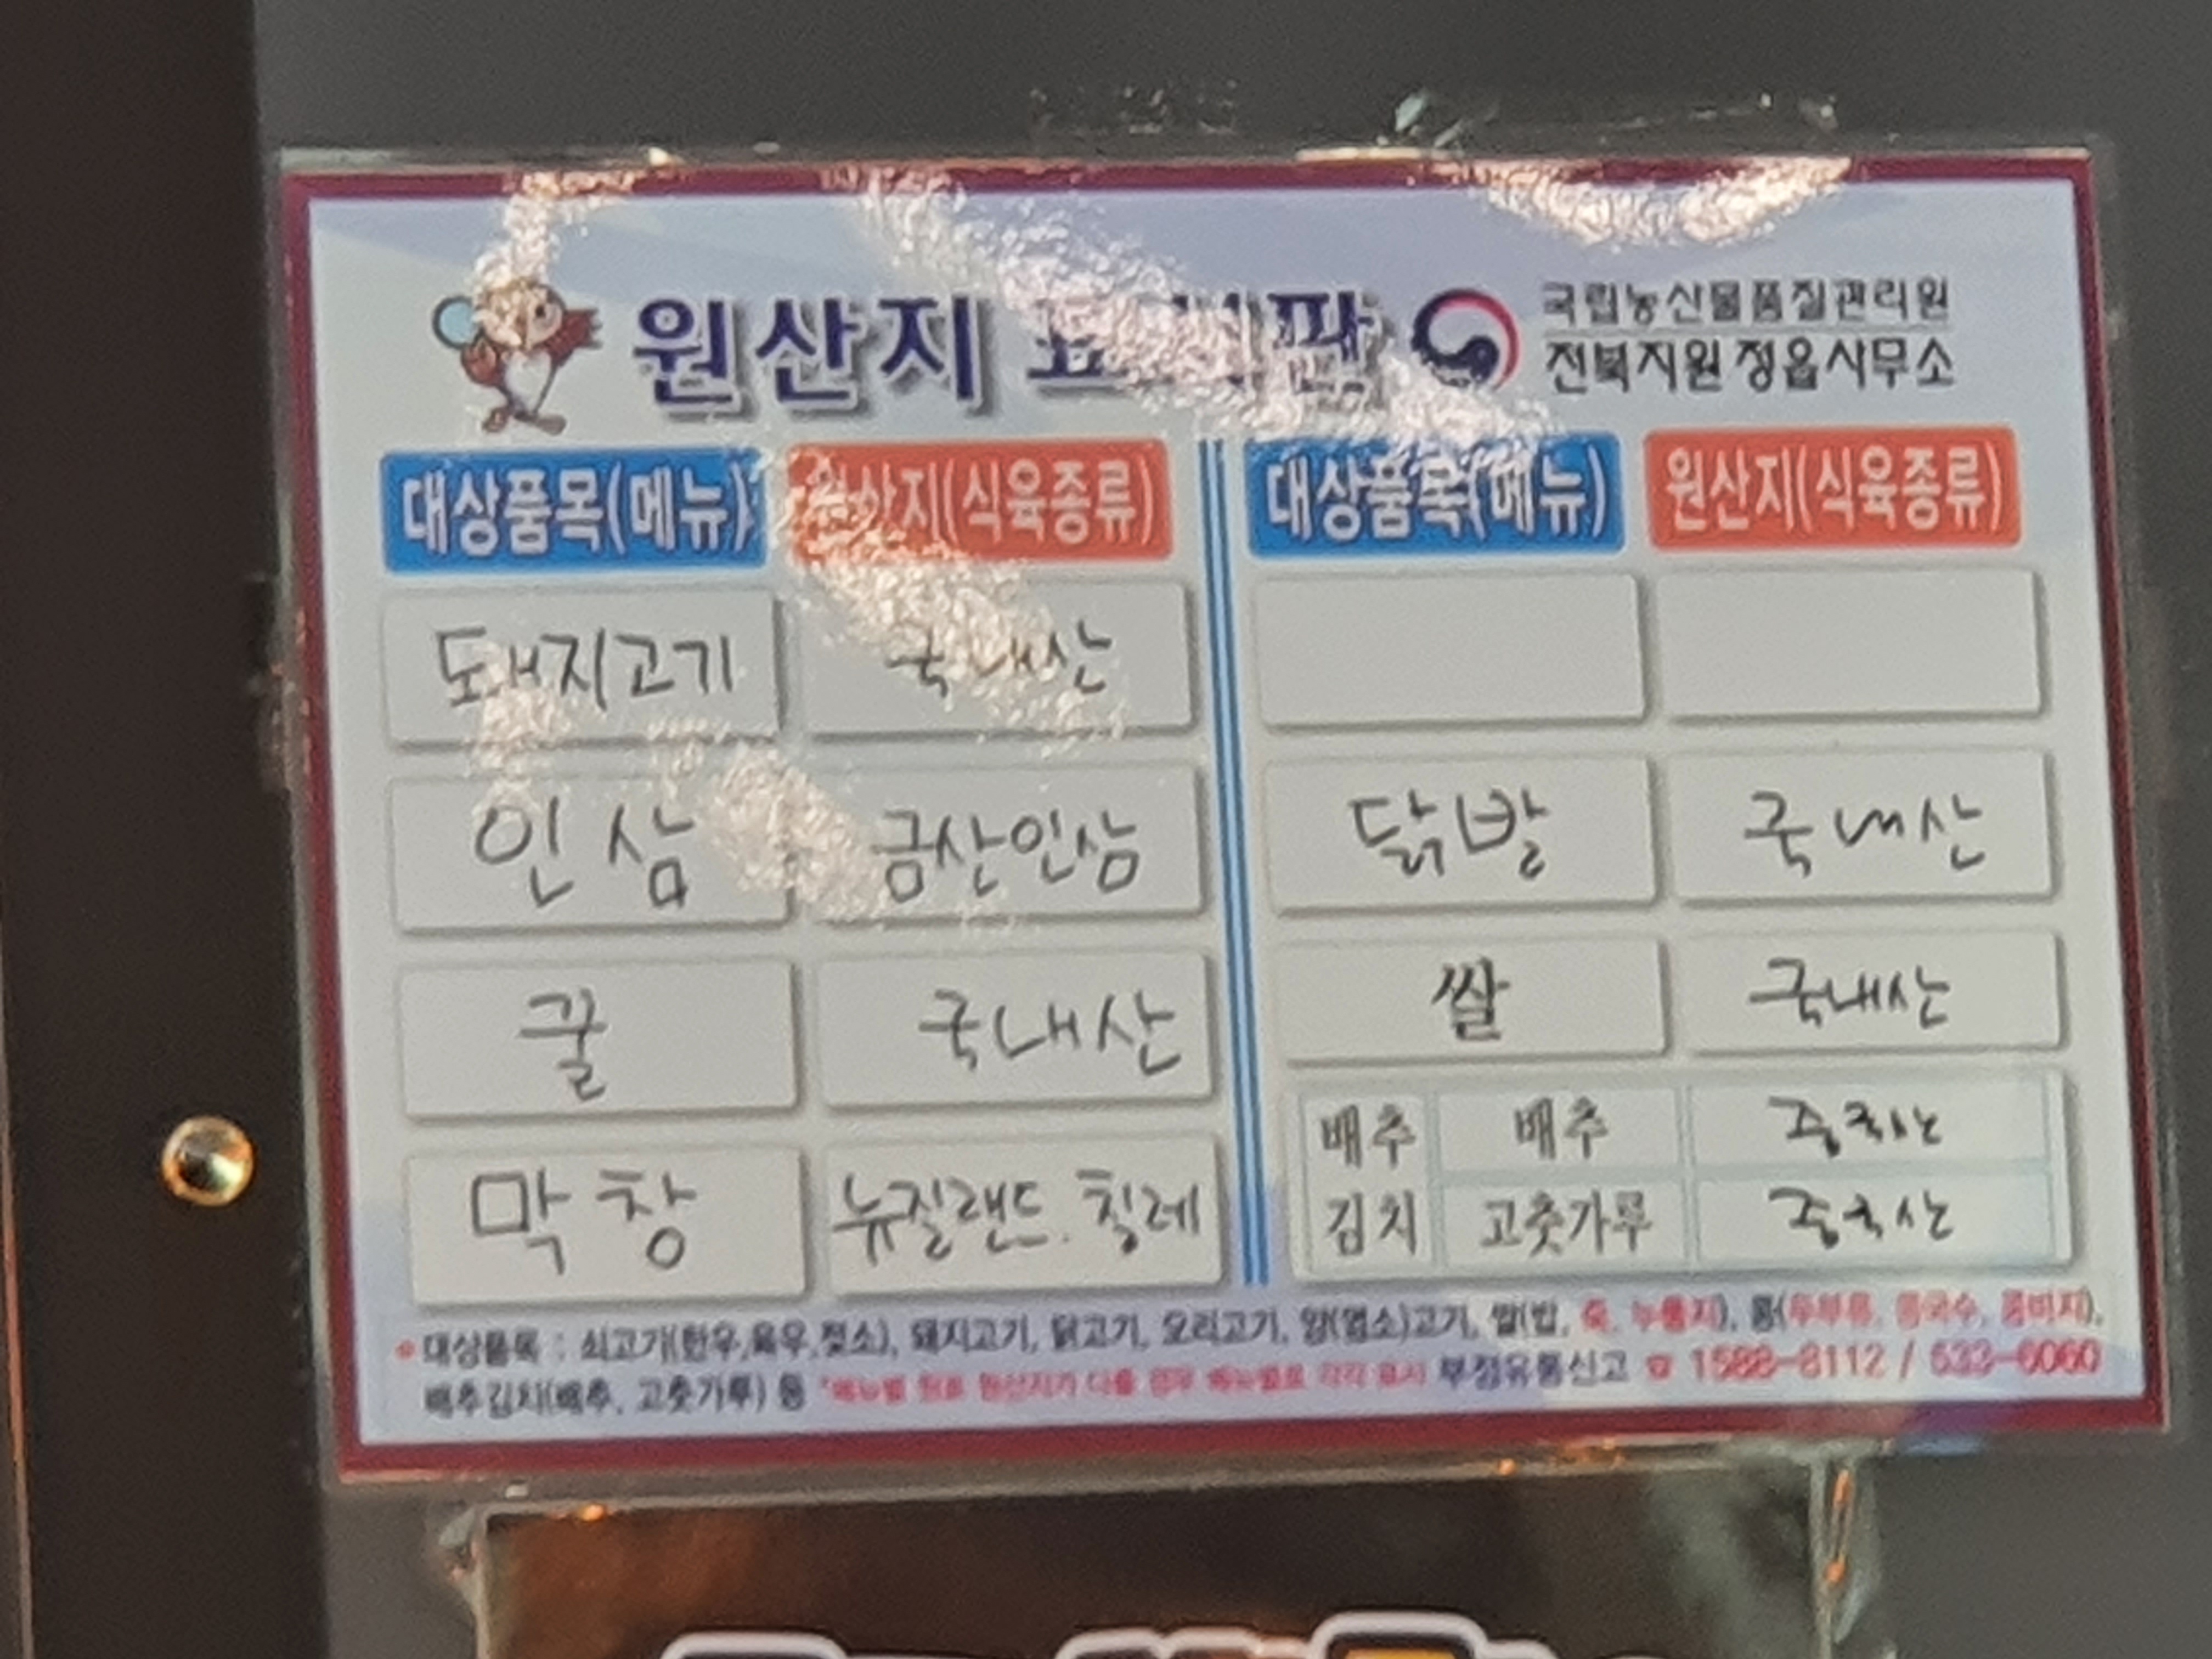 원산지 표시판
국립농산물품질관리원
전북지원 정읍사무소
대상품목(메뉴) 원산지(식육종류) 대상품목(메뉴) 원산지(식육종류)
돼지고기 국내산
인삼 금산인삼 닭발 국내산
굴 국내산 쌀 국내산
막창 뉴질랜드. 칠레 배추김치 배추 중국산
고춧가루 중국산
* 대상품목 : 쇠고기(한우,육우,젖소), 돼지고기, 닭고기, 오리고기, 양(염소)고기, 쌀(밥, 죽, 누룽지), 콩(두부류, 콩국수, 콩비지),
배추김치(배추, 고춧가루) 등 *메뉴별 원료 원산지가 다를 경우 메뉴별로 각각 표시 부정유통신고 ☎ 1588-8112 / 533-6060